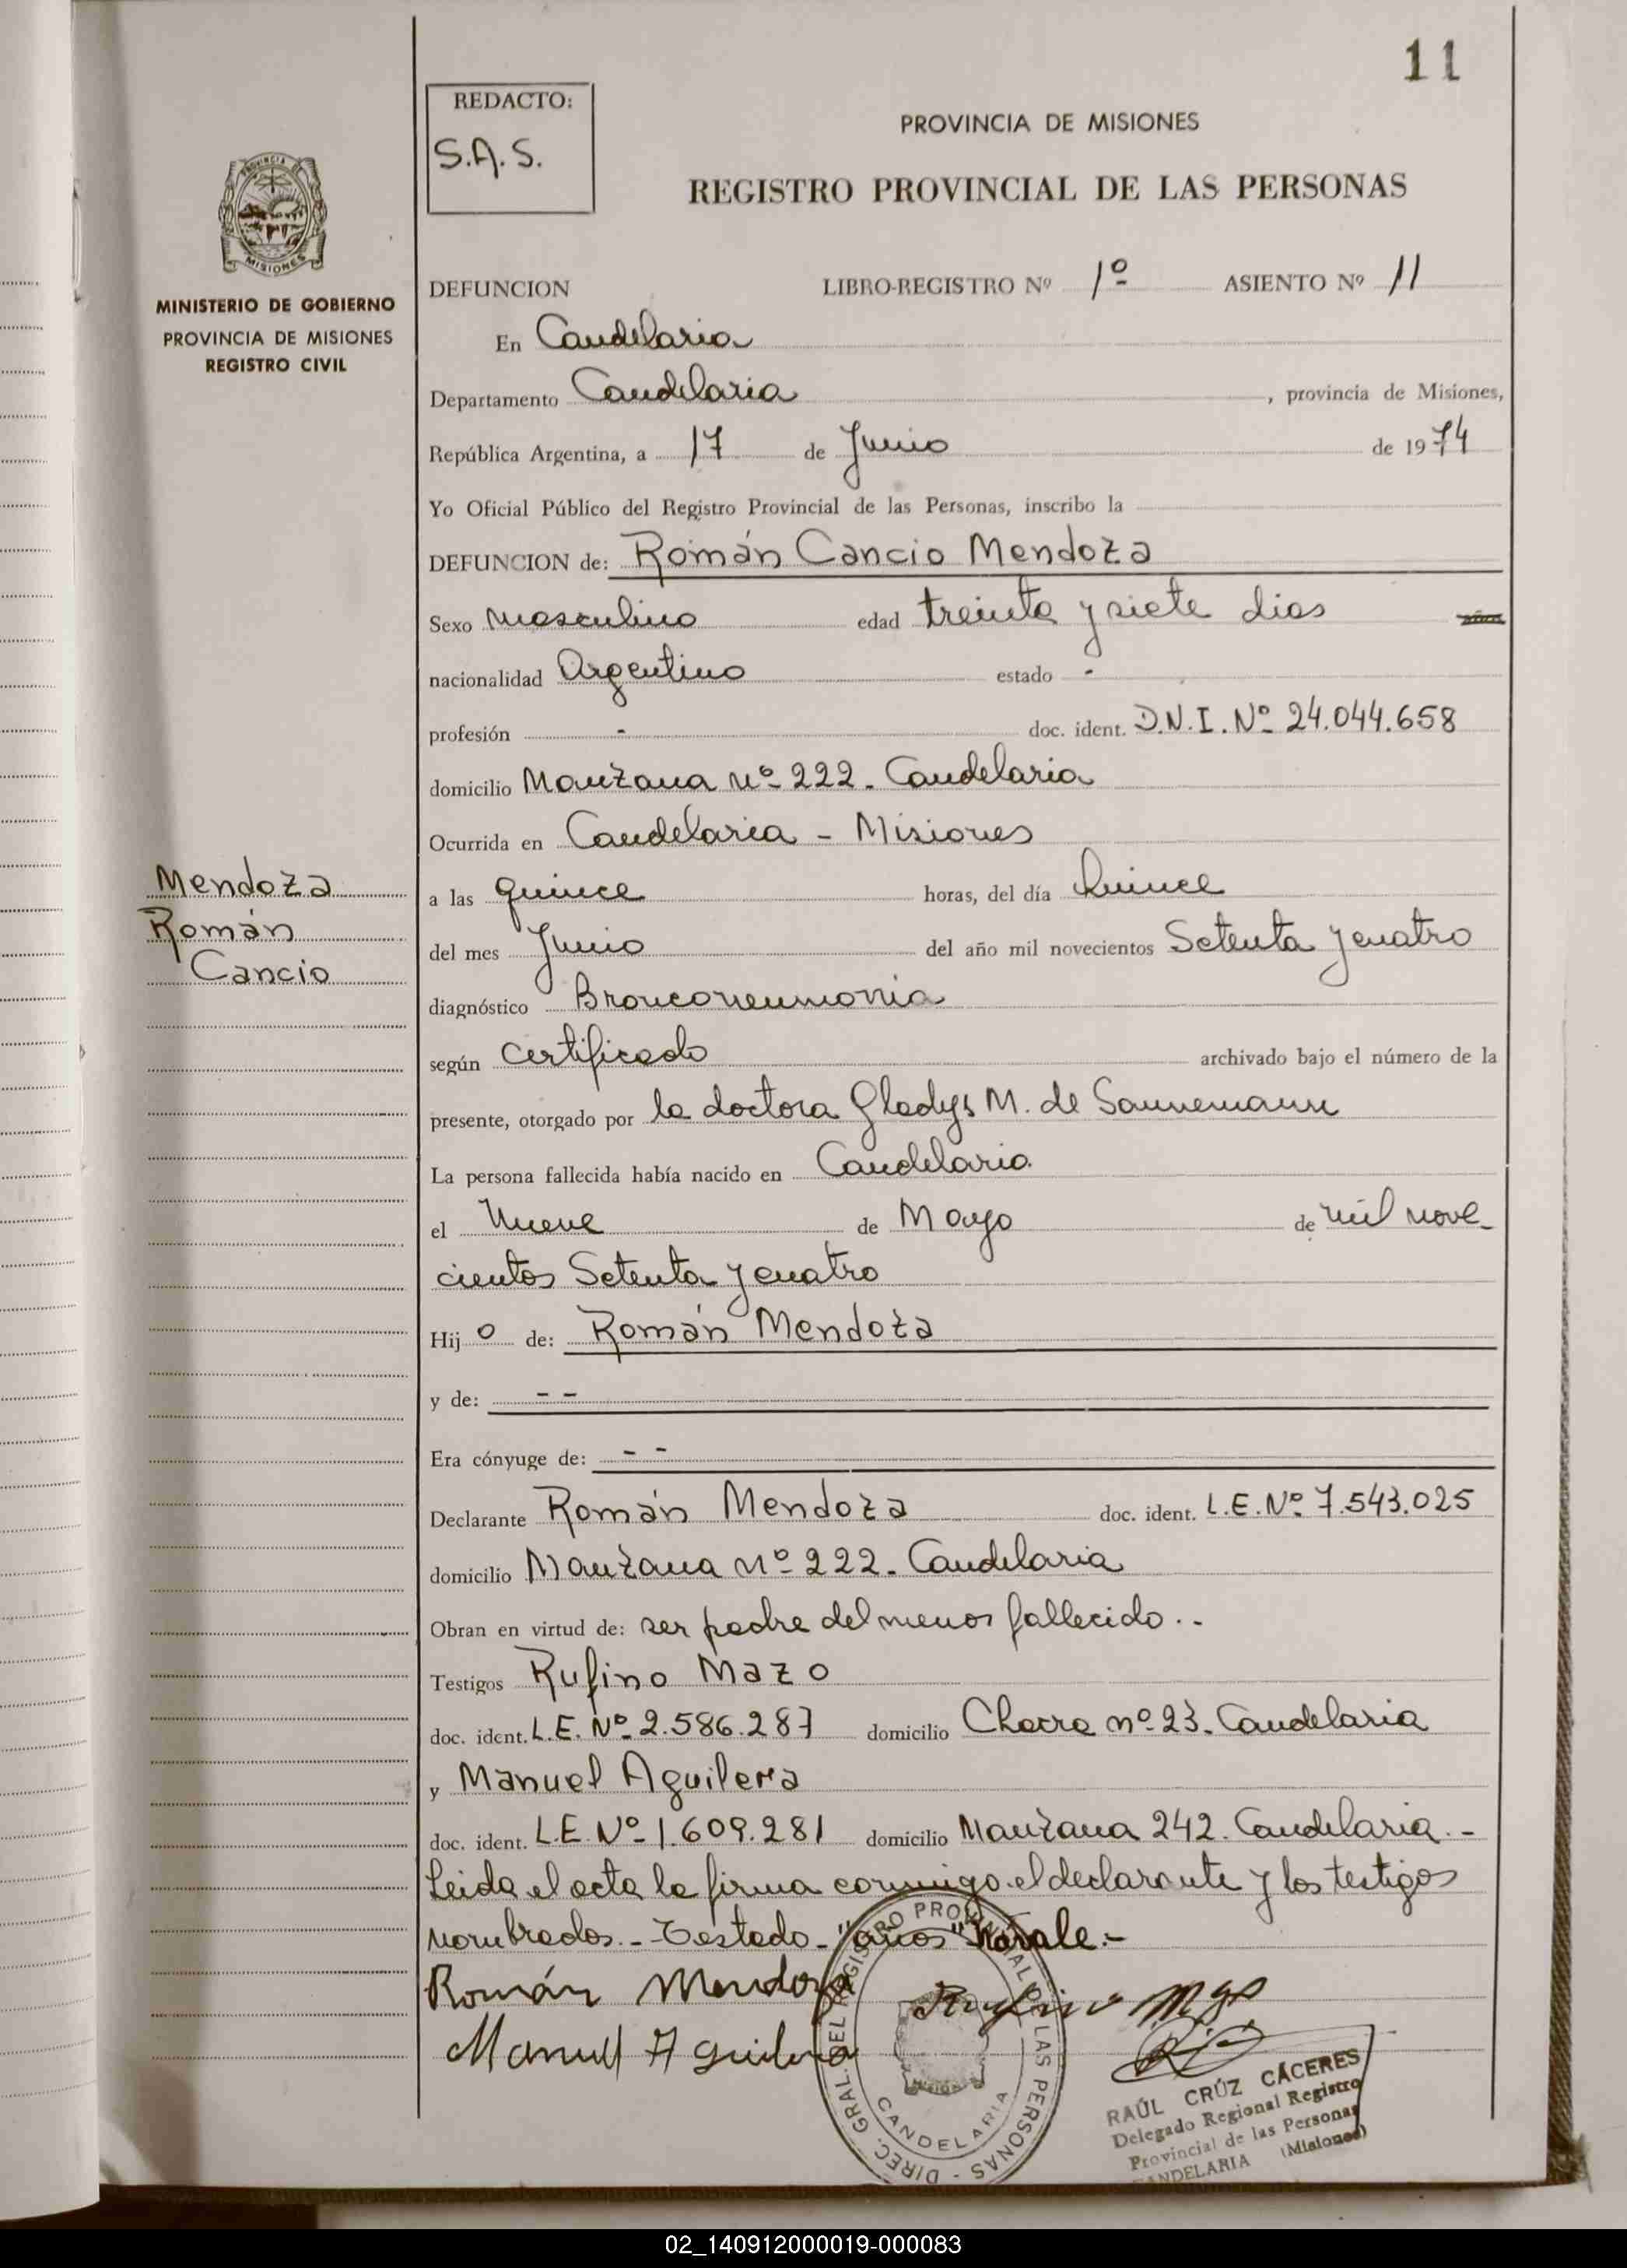 11
REDACTO:
S.A.S.
PROVINCIA DE MISIONES
REGISTRO PROVINCIAL DE LAS PERSONAS
PROVINCIA DE
MISIONES
MINISTERIO DE GOBIERNO
PROVINCIA DE MISIONES
REGISTRO CIVIL
DEFUNCION LIBRO-REGISTRO Nº 1º ASIENTO Nº 11
En Candelaria
Departamento Candelaria, provincia de Misiones,
República Argentina, a 17 de Junio de 1974
Yo Oficial Público del Registro Provincial de las Personas, inscribo la
DEFUNCION de: Román Cancio Mendoza
Sexo masculino edad treinta y siete dias años
nacionalidad Argentino estado -
profesión - doc. ident. D.N.I. Nº 24.044.658
domicilio Manzana nº 222. Candelaria
Ocurrida en Candelaria - Misiones
Mendoza
Román
Cancio
a las quince horas, del día Quince
del mes Junio del año mil novecientos Setenta y cuatro
diagnóstico Bronconeumonia
según certificado archivado bajo el número de la
presente, otorgado por la doctora Gladys M. de Sannemann
La persona fallecida había nacido en Candelaria
el Nueve de Mayo de mil nove-
cientos Setenta y cuatro
Hijo de: Román Mendoza
y de: - -
Era cónyuge de: - -
Declarante Román Mendoza doc. ident. L.E. Nº 7.543.025
domicilio Manzana nº 222. Candelaria
Obran en virtud de: ser padre del menor fallecido.-
Testigos Rufino Mazo
doc. ident. L.E. Nº 2.586.287 domicilio Chacra nº 23. Candelaria
y Manuel Aguilera
doc. ident. L.E. Nº 1.609.281 domicilio Manzana 242. Candelaria.-
Leida el acta la firma conmigo el declarante y los testigos
nombrados.- Testado- "años" No vale.-
Román Mendoza Rufino Mazo
Manuel Aguilera
DIREC. GRAL. DEL REGISTRO PROVINCIAL DE LAS PERSONAS -
MISIONES
CANDELARIA
RAÚL CRÚZ CÁCERES
Delegado Regional Registro
Provincial de las Personas
CANDELARIA (Misiones)
02_140912000019-000083